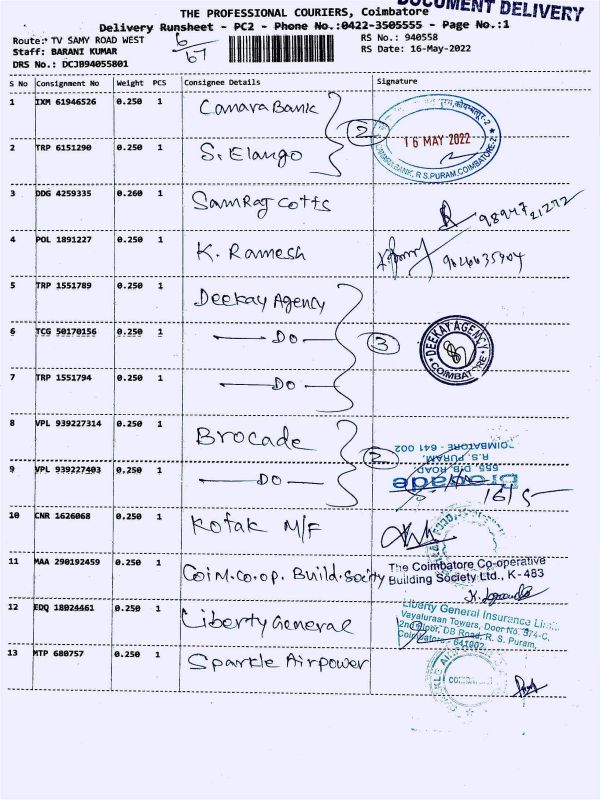 DOCUMENT DELIVERY
THE PROFESSIONAL COURIERS, Coimbatore
Delivery Runsheet - PC2 - Phone No.:0422-3505555 - Page No.:1
Route: TV SAMY ROAD WEST 6/67 RS No.: 940558
Staff: BARANI KUMAR RS Date: 16-May-2022
DRS No.: DCJB94055801
S No Consignment No Weight PCS Consignee Details Signature
1 IXM 61946526 0.250 1 Canara Bank
2 16 MAY 2022
CANARA BANK, R S PURAM, COIMBATORE-2
2 TRP 6151290 0.250 1 S. Elango
3 DDG 4259335 0.260 1 SamRaj Cotts
4 POL 1891227 0.250 1 K. Ramesh
5 TRP 1551789 0.250 1 Deekay Agency
6 TCG 50170156 0.250 1 Do
3 DEEKAY AGENCY COIMBATORE
7 TRP 1551794 0.250 1 Do
8 VPL 939227314 0.250 1 Brocade
COIMBATORE - 641 002
R.S. PURAM,
555, D.B. ROAD
2 Brocade
9 VPL 939227403 0.250 1 Do
16/5
10 CNR 1626068 0.250 1 Kotak M/F
11 MAA 290192459 0.250 1 Coim.co.op. Build.Socity
The Coimbatore Co-operative
Building Society Ltd., K-483
12 EDQ 18024461 0.250 1 Liberty General
Liberty General Insurance
Vayaluraan Towars, Door No. 374-C,
2nd Floor, DB Road, R. S. Puram,
Coimbatore - 641002
13 MTP 680757 0.250 1 Sparkle Airpower